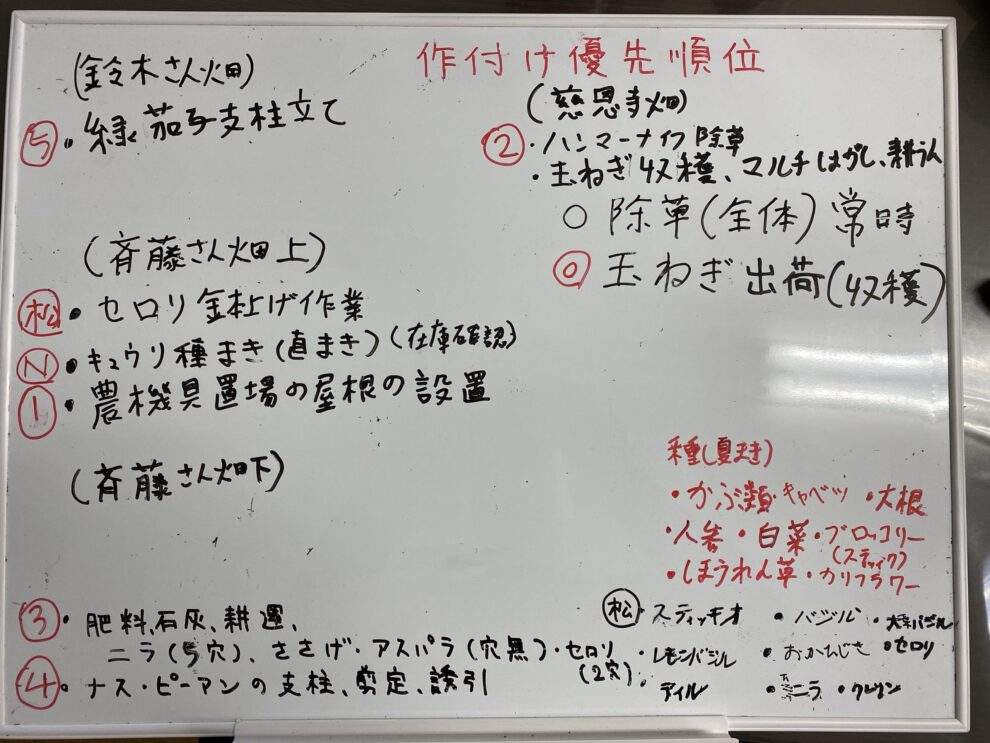 作付け優先順位
(鈴木さん畑)
⑤・緑茄子支柱立て
(慈恩寺畑)
②・ハンマーナイフ除草
・玉ねぎ収穫、マルチはがし、耕うん
○ 除草(全体)常時
⓪ 玉ねぎ出荷(収穫)
(斉藤さん畑上)
松・セロリ 鉢上げ作業
N・キュウリ種まき(直まき)(在庫確認)
①・農機具置場の屋根の設置
(斉藤さん畑下)
③・肥料、石灰、耕運、
ニラ(5穴)、ささげ・アスパラ(穴無)・セロリ
(2穴)
④・ナス・ピーマンの支柱、剪定、誘引
種(夏まき)
・かぶ類・キャベツ ・大根
・人参 ・白菜・ブロッコリー
(スティック)
・ほうれん草・カリフラワー
松・スティッキオ ・バジル ・バジル
・レモンバジル ・おかひじき ・セロリ
・ディル ・ニラ ・クレソン